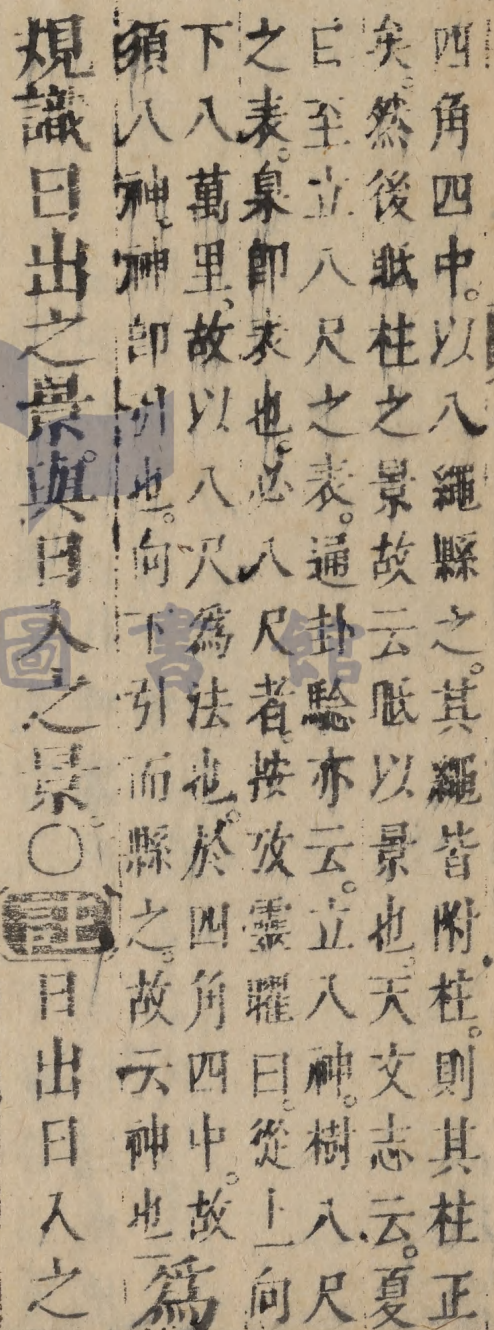 四角四中。以八繩縣之。其繩皆附柱。則其柱正
矣。然後眡柱之景故云眡以景也。天文志云。夏
日至立八尺之表。通卦驗亦云。立八神。樹八尺
之表。臬即表也。必八尺者。按攷靈曜曰。從上向
下八萬里。故以八尺爲法也。於四角四中。故
須八神。神即引也。向下引而縣之。故云神也 爲
規識日出之景。與日入之景。〇注日出日入之
圖書館